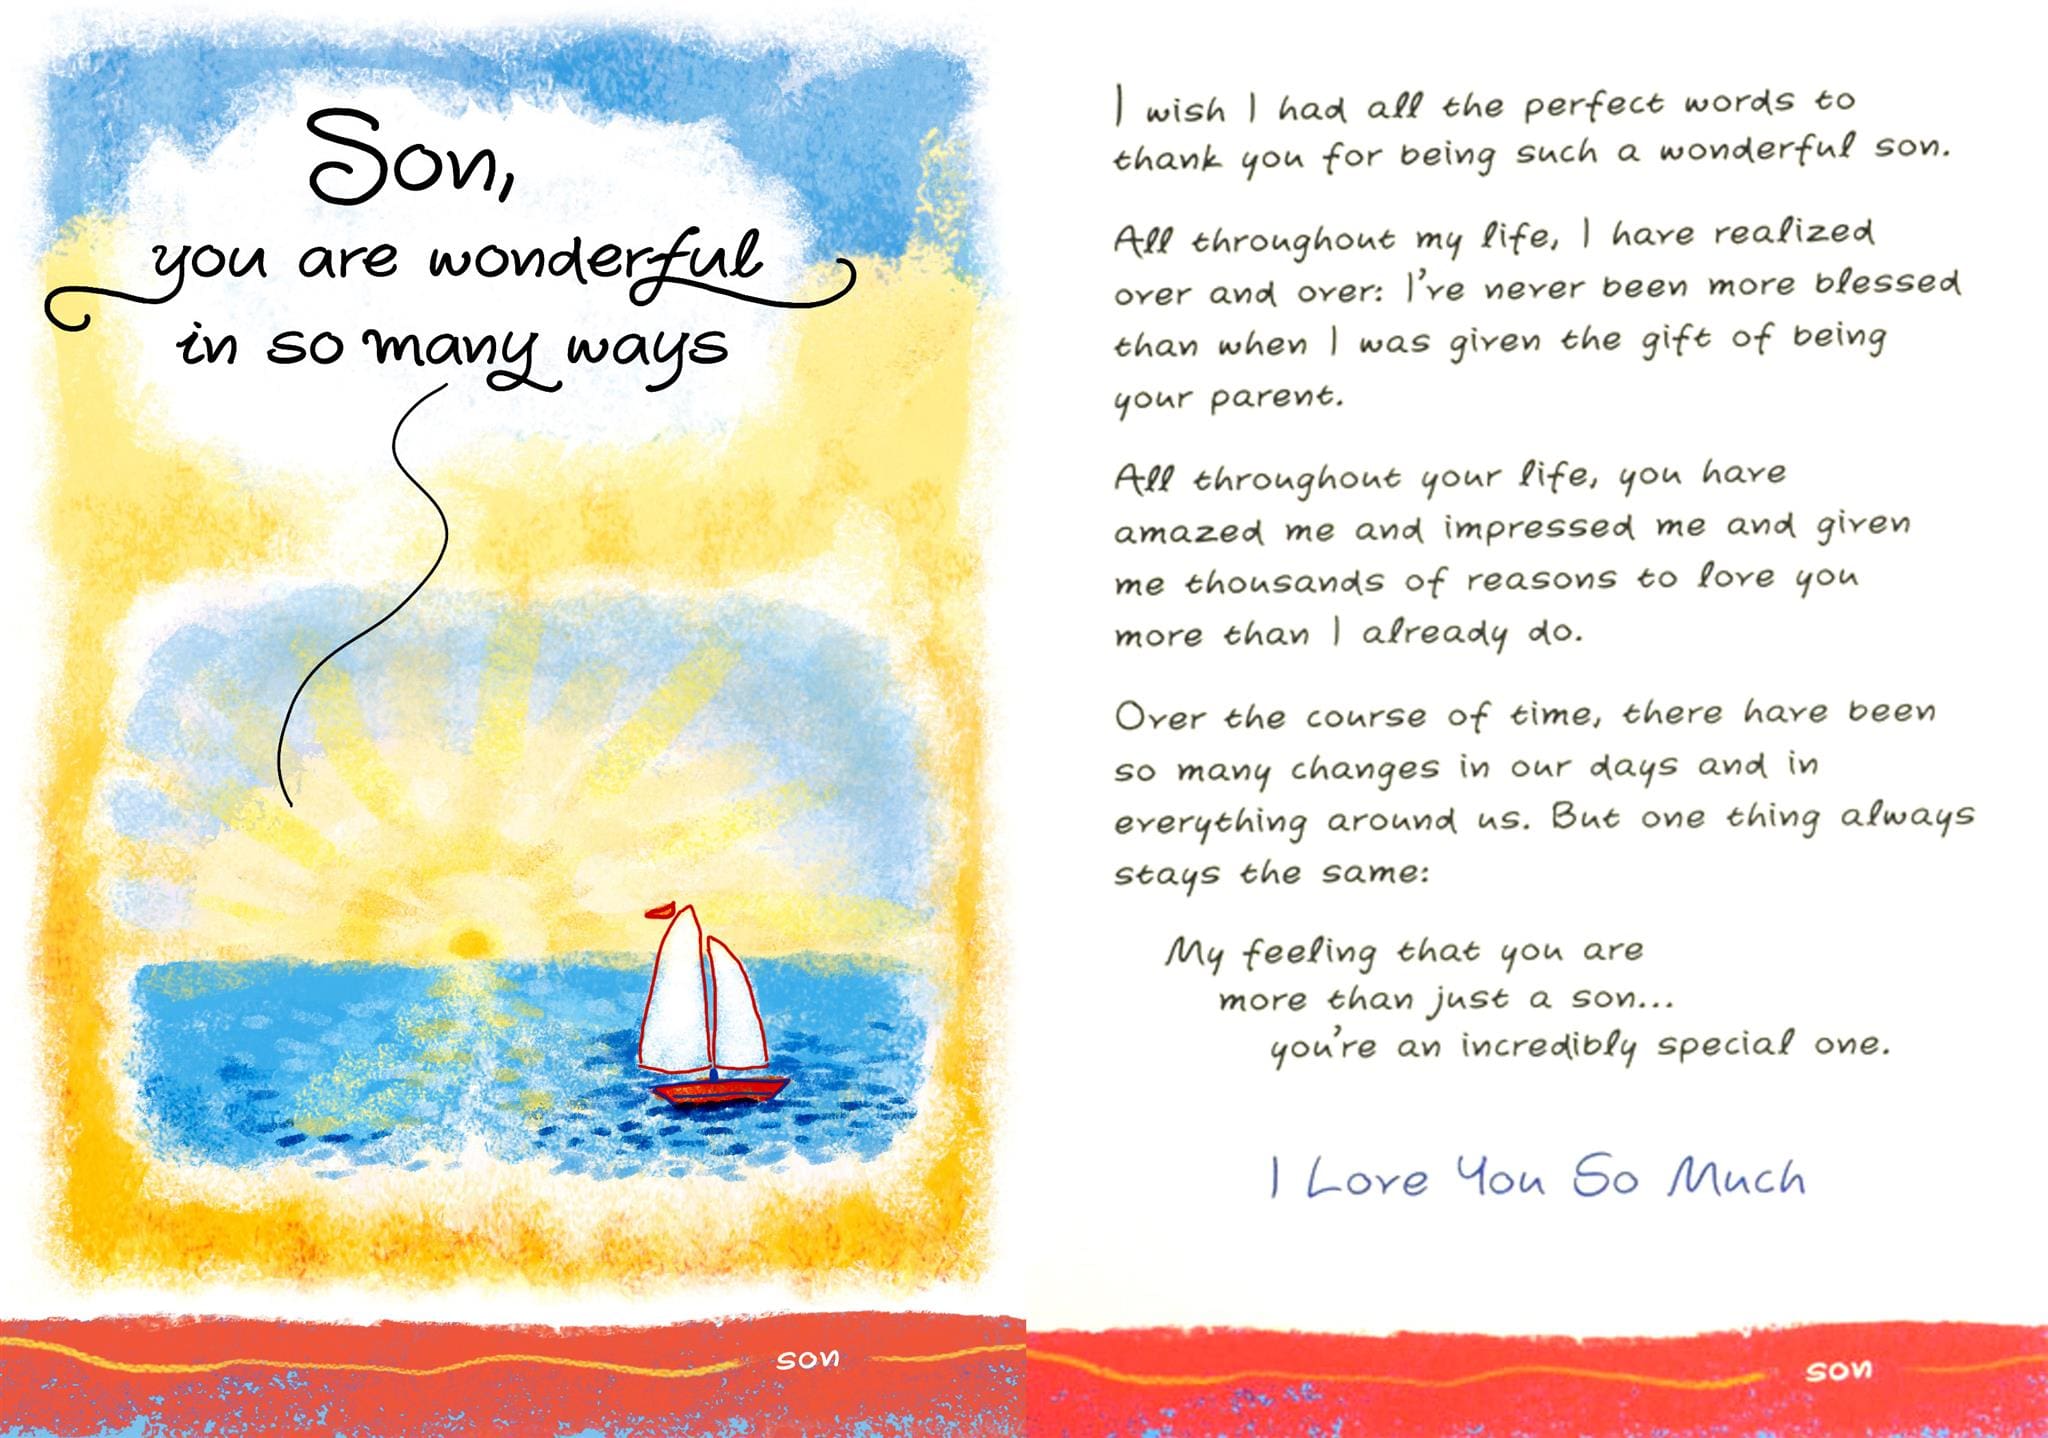 Son,
you are wonderful
in so many ways
son
I wish I had all the perfect words to
thank you for being such a wonderful son.
All throughout my life, I have realized
over and over: I've never been more blessed
than when I was given the gift of being
your parent.
All throughout your life, you have
amazed me and impressed me and given
me thousands of reasons to love you
more than I already do.
Over the course of time, there have been
so many changes in our days and in
everything around us. But one thing always
stays the same:
My feeling that you are
more than just a son...
you're an incredibly special one.
I Love You So Much
son